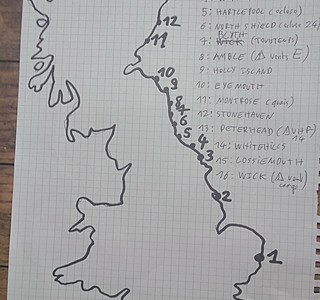 5: HARTLEPOOL (
6: NORTH SHIELD (
BLYTH
7: WICK (
8: AMBLE (Δ vents E)
9: HOLLY ISLAND
10: EYEMOUTH
11: MONTROSE (quais)
12: STONEHAVEN
13: PETERHEAD (Δ VHF)
14
14: WHITEHILLS
15: LOSSIEMOUTH
16: WICK (Δ
12
11
10
9
8
7
6
5
4
3
2
1